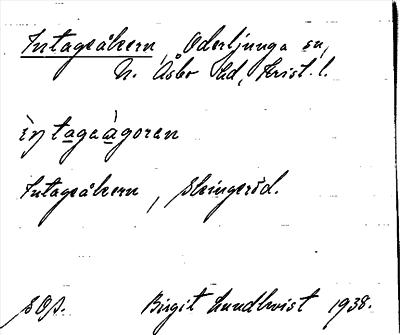 Intagsåkern, Oderljunga sn,
N. Åsbo hd, Krist. l.
ìntagaàgoren
Intagsåkern, Skingeröd.
s Os. Birgit Lundkvist 1938.